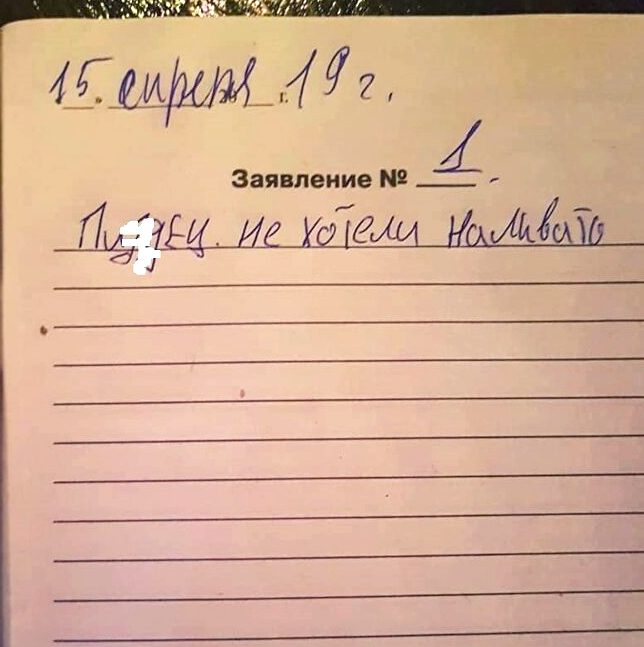 15 апреля 19 г.
Заявление № 1.
не хотели наливать